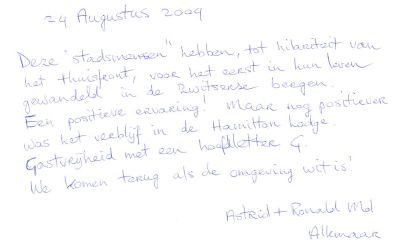 24 Augustus 2009
Deze "stadsmensen" hebben, tot hilariteit van
het thuisfront, voor het eerst in hun leven
gewandeld in de Zwitserse bergen.
Een positieve ervaring! Maar nog positiever
was het verblijf in de Hamilton Lodge.
Gastvrijheid met een hoofdletter G.
We komen terug als de omgeving wit is!
Astrid + Ronald Mol
Alkmaar